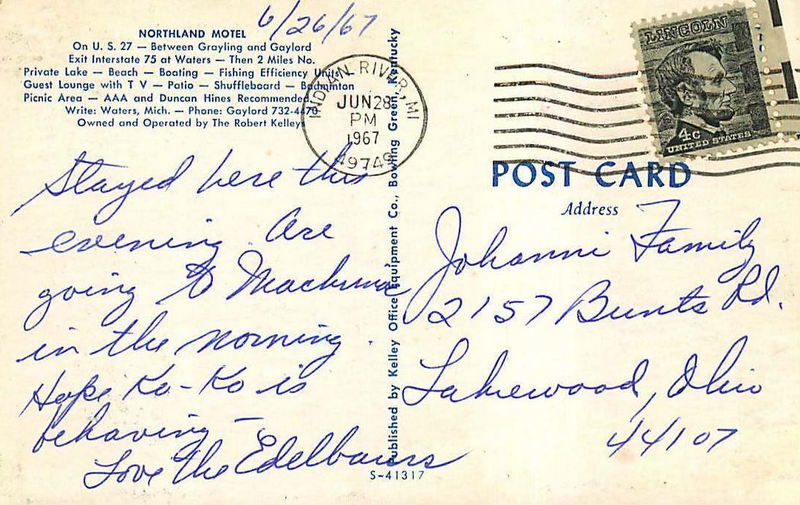 6/26/67
NORTHLAND MOTEL
On U. S. 27 — Between Grayling and Gaylord
Exit Interstate 75 at Waters — Then 2 Miles No.
Private Lake — Beach — Boating — Fishing Efficiency Units
Guest Lounge with T V — Patio — Shuffleboard — Badminton
Picnic Area — AAA and Duncan Hines Recommended
Write: Waters, Mich. — Phone: Gaylord 732-4470
Owned and Operated by The Robert Kelley
INDIAN RIVER, MI
JUN 28
PM
1967
49749
Stayed here this
evening. Are
going to Mackinac
in the morning.
Hope Ko-Ko is
behaving —
Love The Edelbauers
Published by Kelley Office Equipment Co., Bowling Green, Kentucky
S-41317
LINCOLN
4c
UNITED STATES
POST CARD
Address
Johanni Family
2157 Bunts Rd.
Lakewood, Ohio
44107